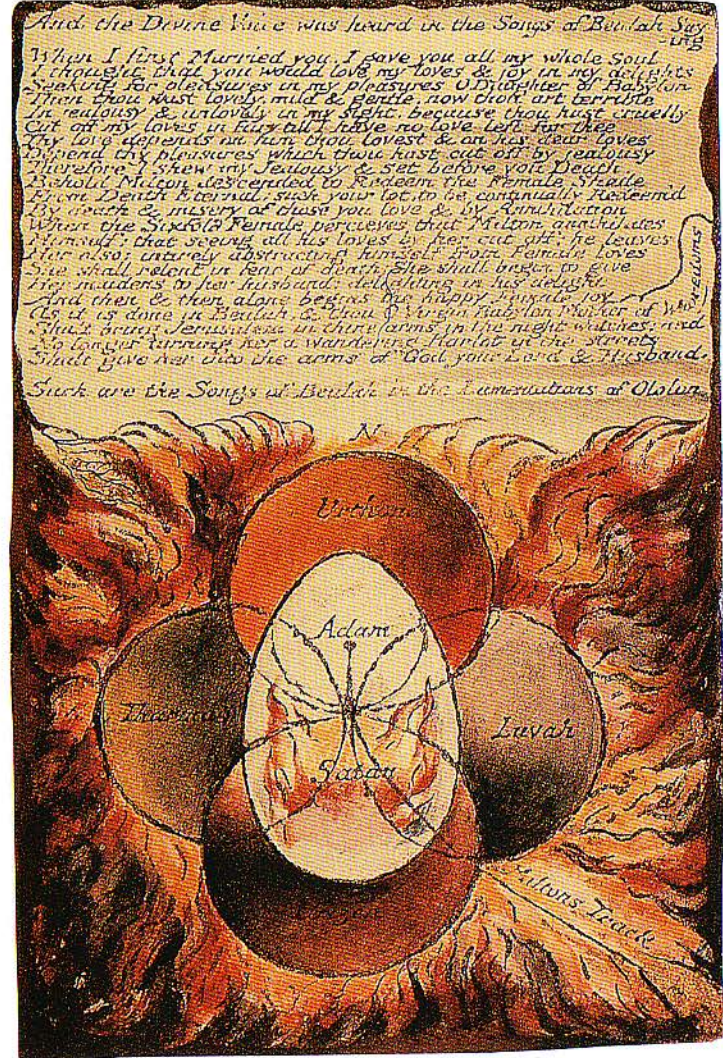 And the Divine Voice was heard in the Songs of Beulah Say
ing
When I first Married you, I gave you all my whole Soul
I thought that you would love my loves & joy in my delights
Seeking for pleasures in my pleasures O Daughter of Babylon
Then thou wast lovely, mild & gentle, now thou art terrible
In jealousy & unlovely in my sight, because thou hast cruelly
Cut off my loves in fury till I have no love left for thee
Thy love depends on him thou lovest & on his dear loves
Depend thy pleasures which thou hast cut off by jealousy
Therefore I shew my Jealousy & set before you Death.
Behold Milton descended to Redeem the Female Shade
From Death Eternal; such your lot, to be continually Redeem'd
By death & misery of those you love & by Annihilation
When the Sixfold Female percieves that Milton annihilates
Himself: that seeing all his loves by her cut off: he leaves
Her also: intirely abstracting himself from Female loves
She shall relent in fear of death: She shall begin to give
Her maidens to her husband: delighting in his delight
And then & then alone begins the happy Female joy
As it is done in Beulah, & thou O Virgin Babylon Mother of Who
redoms
Shalt bring Jerusalem in thine arms in the night watches; and
No longer turning her a wandering Harlot in the streets
Shalt give her into the arms of God your Lord & Husband.
Such are the Songs of Beulah in the Lamentations of Ololon
N
Urthona
Adam
Tharmas
Luvah
Satan
Urizen
Miltons Track